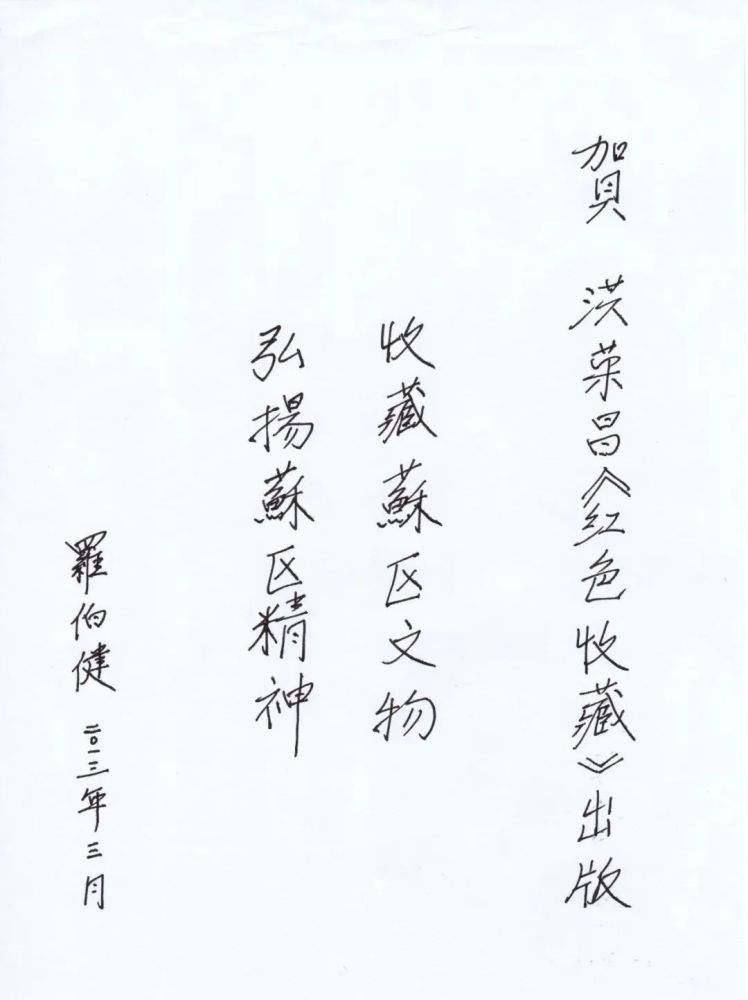 賀 洪荣昌《红色收藏》出版
收藏蘇区文物
弘揚蘇区精神
羅伯健 二〇一三年三月